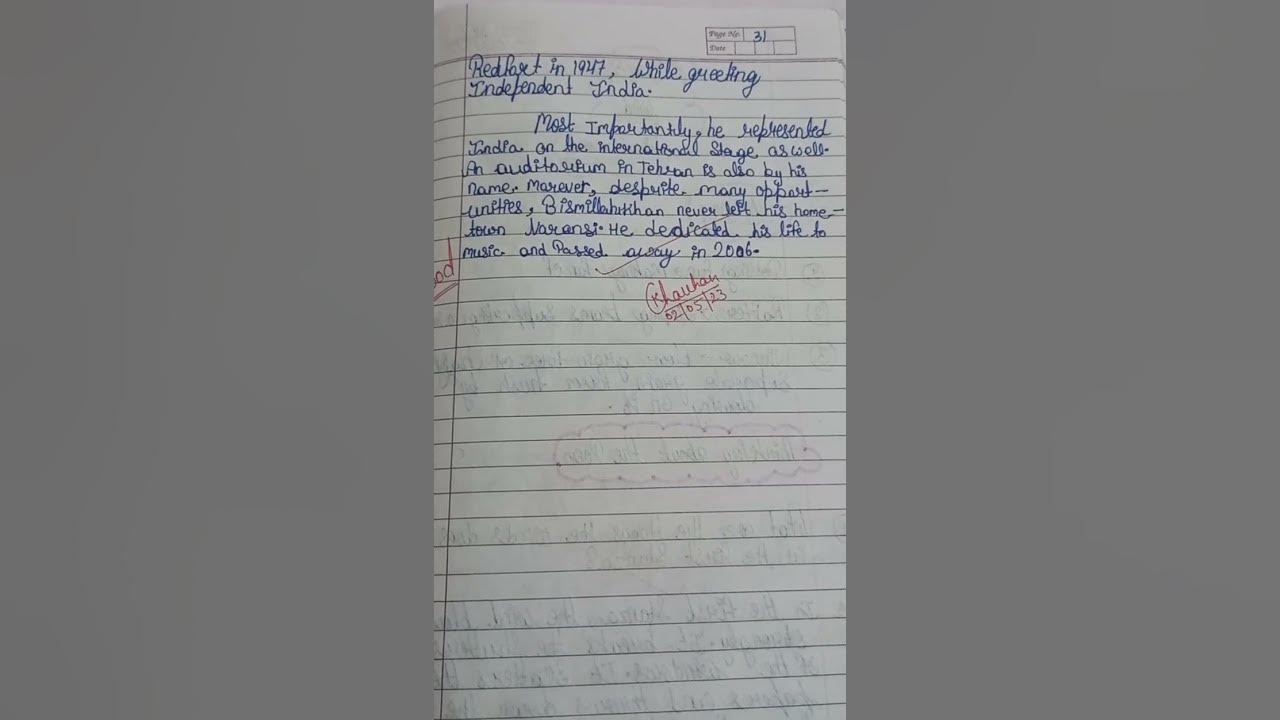 Page No. 31
Date
Redfort in 1947, While greeting
Independent India.
Most Importantly, he represented
India on the international Stage as well.
An auditorium in Tehran is also by his
name. Marever, desprite many opport-
unities, Bismillahkhan never left his home-
town Varansi. He dedicated his life to
music and Passed away in 2006.
od
Khauhan
02/05/23